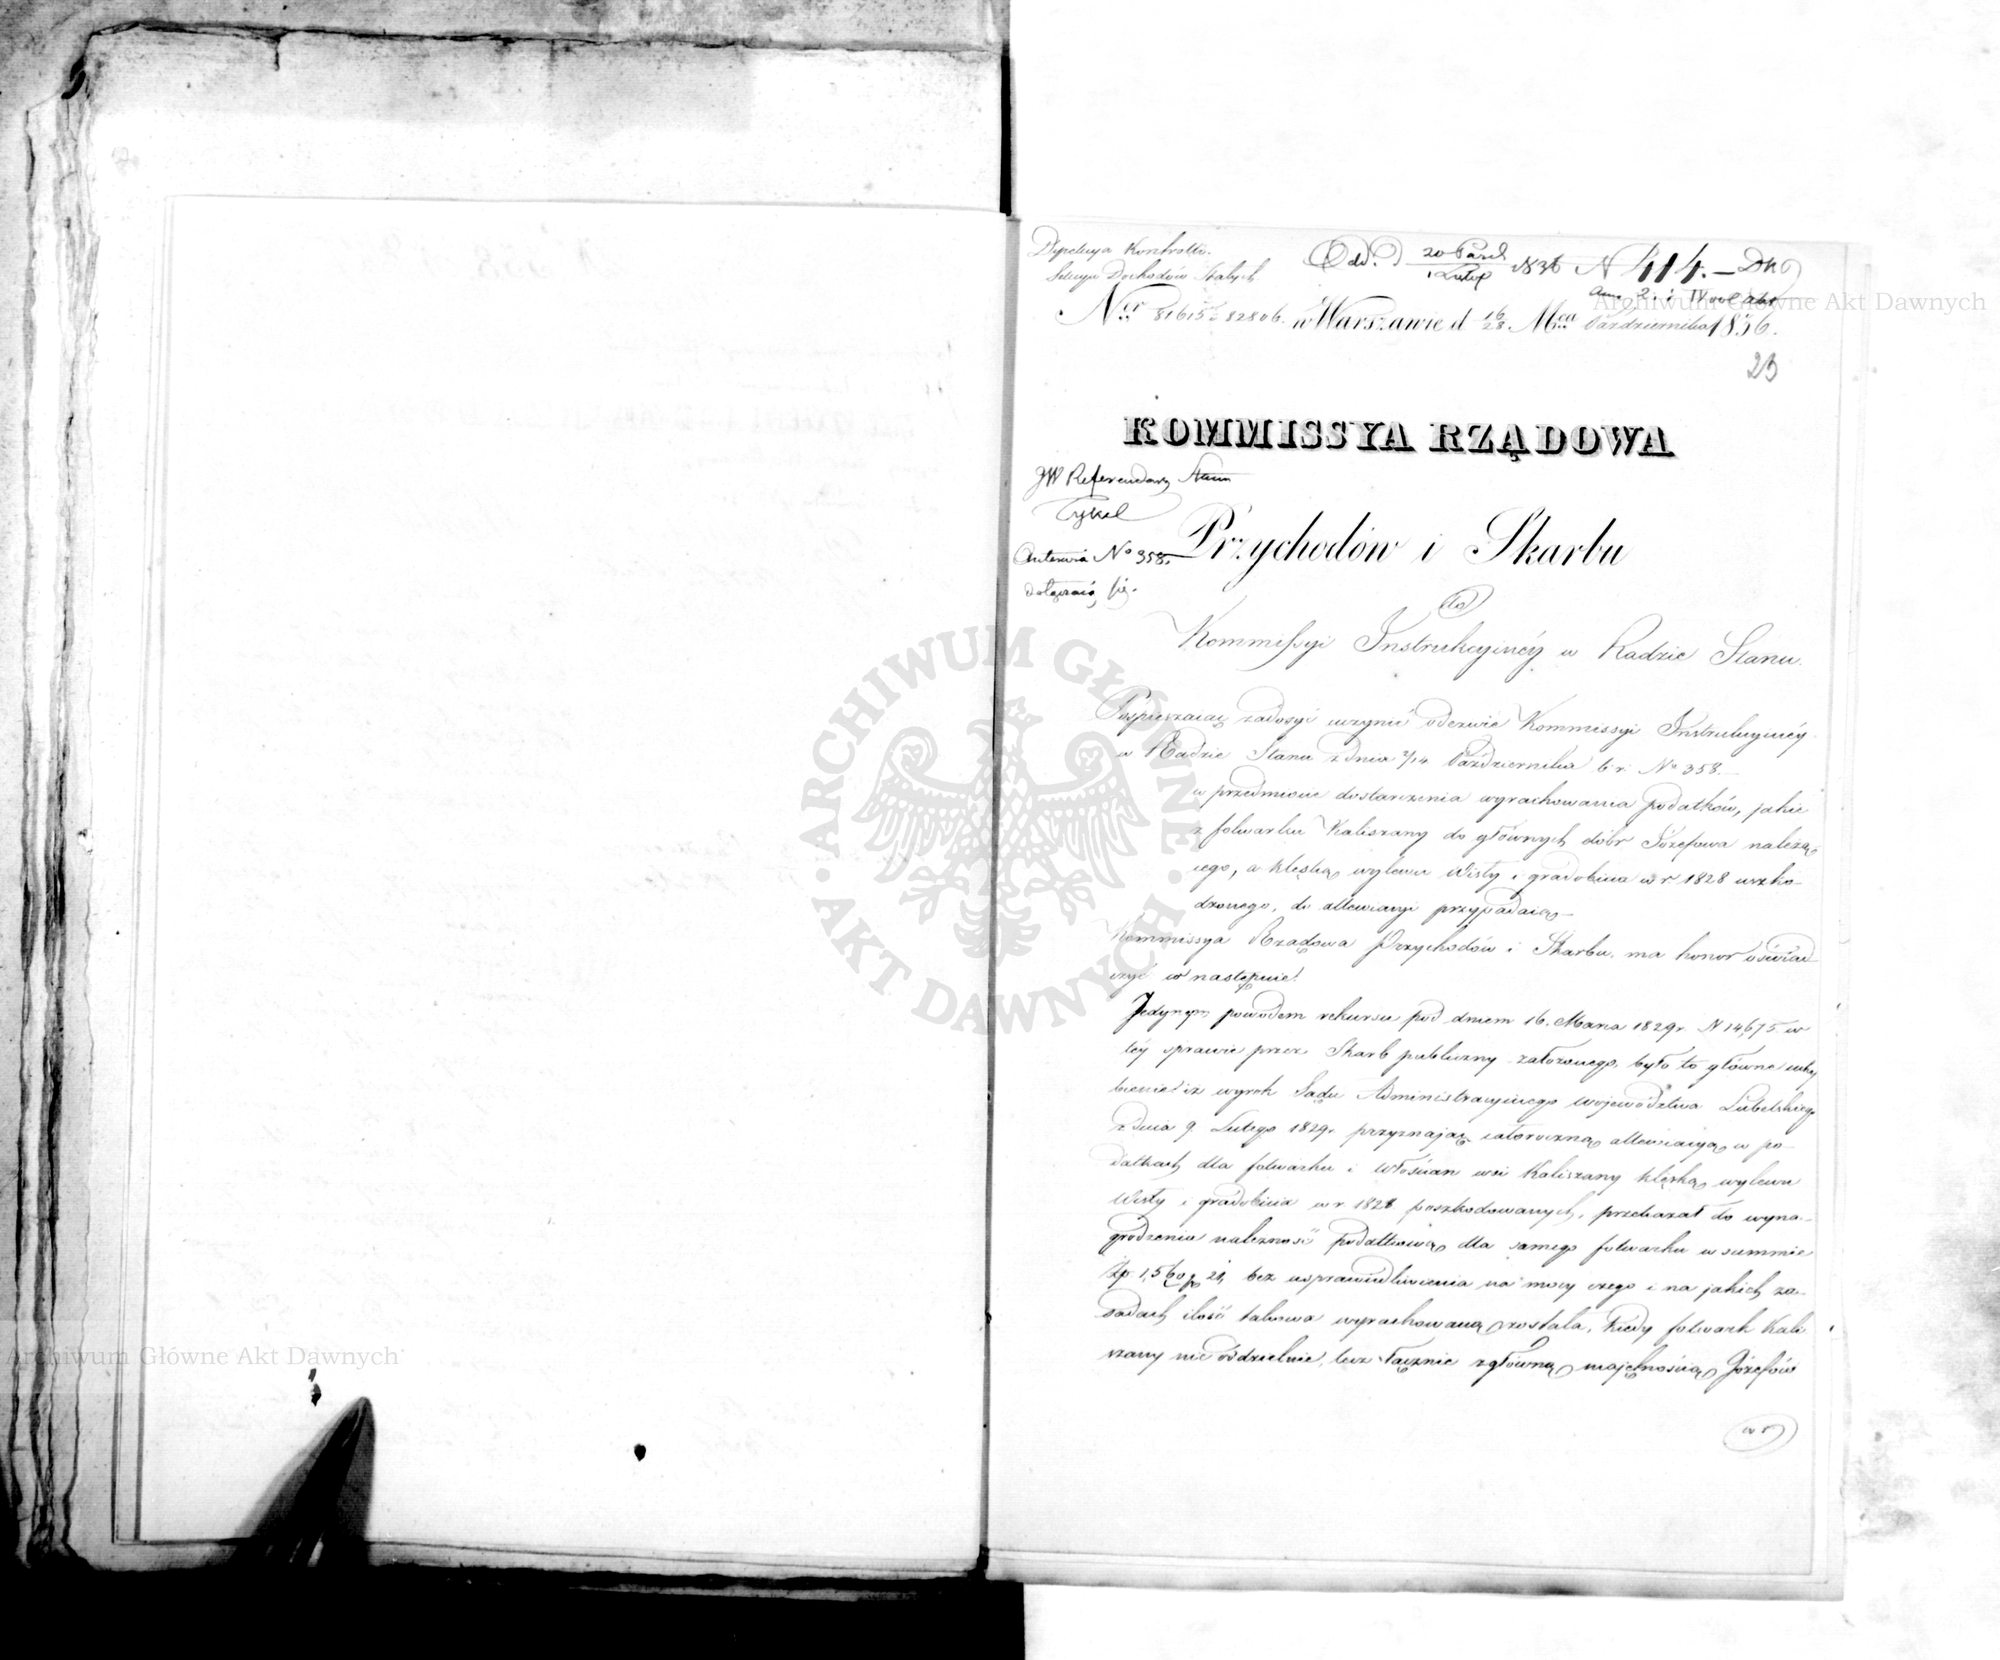 Dyrekcya Kontrolli.
Sekcya Dochodów Stałych
Odd. D 20 Paźd. 1836 N 414. –
1 Listop
Nr 81615 i 82806. w Warszawie d 16/28 Mca Października 1836.
23
KOMMISSYA RZĄDOWA
JW Referendarz Stanu
Tykel
Przychodów i Skarbu
Anteriora No 358.
dołączaią się.
do
Kommissyi Instrukcyinéy w Radzie Stanu.
Pospieszaiąc zadosyć uczynić odezwie Kommissyi Instrukcyinéy
w Radzie Stanu z dnia 2/14 Października b. r. No 358. –
w przedmiocie dostarczenia wyrachowania podatków, jakie
z folwarku Kaliszany do głównych dóbr Józefowa należą-
cego, a klęską wylewu Wisły i gradobicia w r. 1828 uszko-
dzonego, do allewiacyi przypadaią –
Kommissya Rządowa Przychodów i Skarbu, ma honor oświad-
czyć co następuie:
Jedynym powodem rekursu pod dniem 16. Marca 1829 r. N 14,675. w
téy sprawie przez Skarb publiczny założonego, było to główne uchy
bienie iż wyrok Sądu Administracyinego Województwa Lubelskiego
z dnia 9. Lutego 1829 r. przyznając całoroczną allewiacyą w po-
datkach dla folwarku i Włościan wsi Kaliszany klęską wylewu
Wisły i gradobicia w r. 1828 poszkodowanych, przekazał do wyna-
grodzenia należność podatkową dla samego folwarku w summie
Złp. 1,560 g 21, bez usprawiedliwienia na mocy czego i na jakich za-
sadach ilość takowa wyrachowaną została, kiedy folwark Kali
szany nie oddzielnie, lecz łącznie z główną majętnością Józefów
Archiwum Główne Akt Dawnych
Archiwum Główne Akt Dawnych
ARCHIWUM GŁÓWNE · AKT DAWNYCH ·